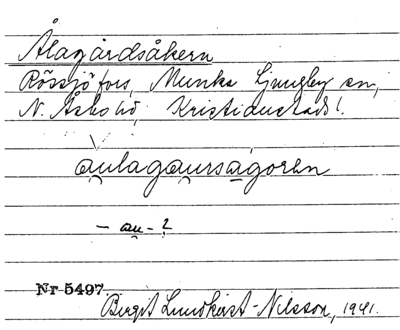 Ålagårdsåkern
Rössjöfors, Munka Ljungby sn,
N. Åsbo hd, Kristianstads l.
au̯lagau̯rsagoren
- au̯ - ?
Nr 5497
Birgit Lundkvist-Nilsson, 1941.